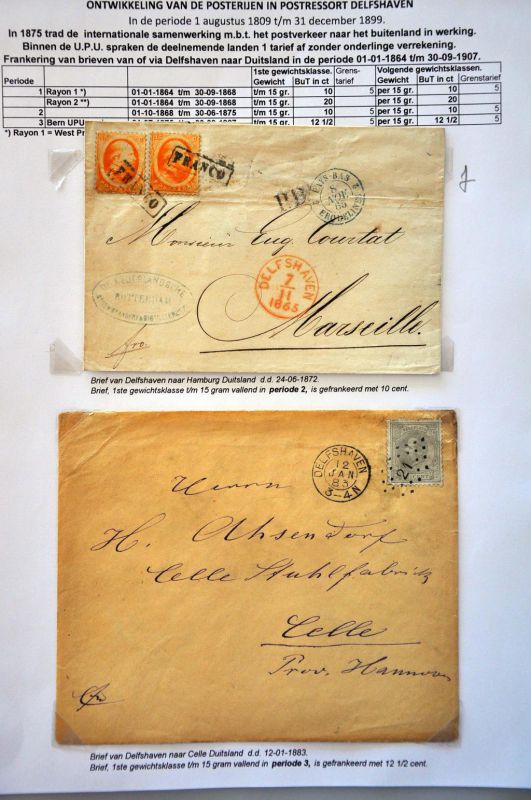 ONTWIKKELING VAN DE POSTERIJEN IN POSTRESSORT DELFSHAVEN
In de periode 1 augustus 1809 t/m 31 december 1899.
In 1875 trad de internationale samenwerking m.b.t. het postverkeer naar het buitenland in werking.
Binnen de U.P.U. spraken de deelnemende landen 1 tarief af zonder onderlinge verrekening.
Frankering van brieven van of via Delfshaven naar Duitsland in de periode 01-01-1864 t/m 30-09-1907.
1ste gewichtsklasse. Grens- Volgende gewichtsklassen.
Periode t/m 15 gr. BuT in ct tarief Gewicht BuT in ct Grenstarief
1 Rayon 1 *) 01-01-1864 t/m 30-09-1868 t/m 15 gr. 10 5 per 15 gr. 10 5
Rayon 2 **) 01-01-1864 t/m 30-09-1868 t/m 15 gr. 20 per 15 gr. 20
2 01-10-1868 t/m 30-06-1875 t/m 15 gr. 10 5 per 15 gr. 10 5
3 Bern UPU t/m 15 gr. 12 1/2 5 per 15 gr. 12 1/2 5
*) Rayon 1 = West
FRANCO
FRANCO
P.D.
PAYS-BAS
8
65
Monsieur Eug. Courtat
DELFSHAVEN
7
11
1865
DE NEDERLANDSCHE
ROTTERDAM
Marseille.
fro
Brief van Delfshaven naar Hamburg Duitsland d.d. 24-06-1872.
Brief, 1ste gewichtsklasse t/m 15 gram vallend in periode 2, is gefrankeerd met 10 cent.
DELFSHAVEN
12
JAN
83
3-4N
21
Herrn
H. Ahsendorf
Celle Stuhlfabrick
Celle
Prov. Hannover
Brief van Delfshaven naar Celle Duitsland d.d. 12-01-1883.
Brief, 1ste gewichtsklasse t/m 15 gram vallend in periode 3, is gefrankeerd met 12 1/2 cent.